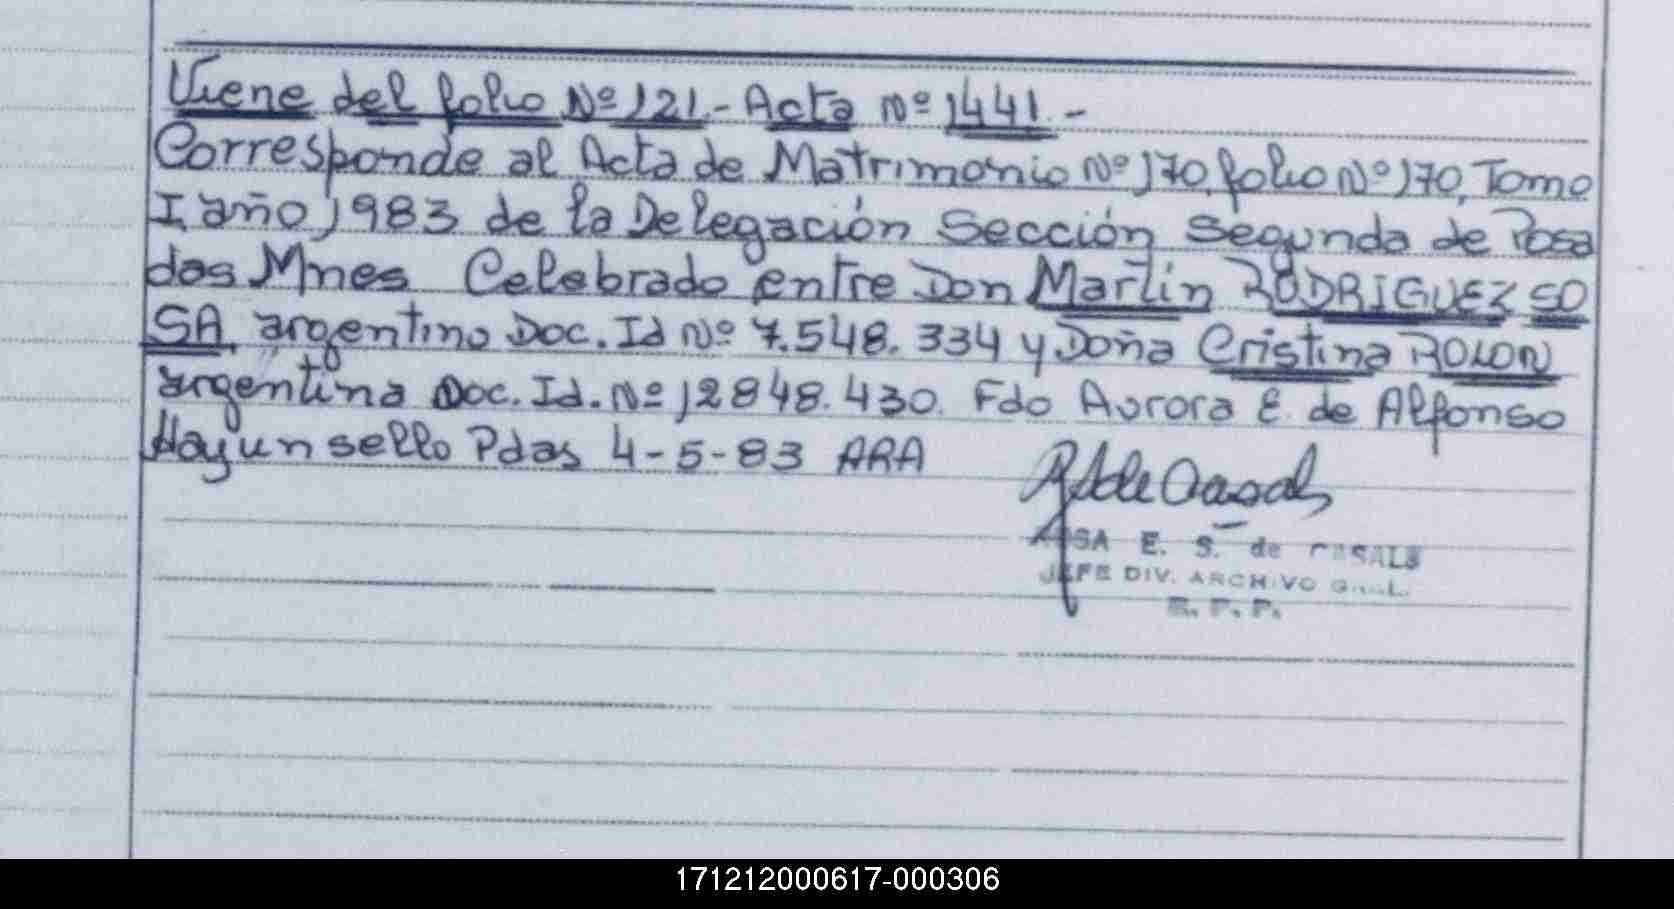 Viene del folio Nº 121.- Acta Nº 1441.-
Corresponde al Acta de Matrimonio Nº 170, folio Nº 170, Tomo
I año 1983 de la Delegación Sección Segunda de Posa
das Mnes Celebrado entre Don Martin RODRIGUEZ SO
SA, argentino Doc. Id Nº 7.548.334 y Doña Cristina ROLON
argentina Doc. Id. Nº 12848.430. Fdo Aurora E. de Alfonso
Hay un sello Pdas 4-5-83 ARA
ROSA E. S. de CASALS
JEFE DIV. ARCHIVO GRAL.
R. P. P.
171212000617-000306